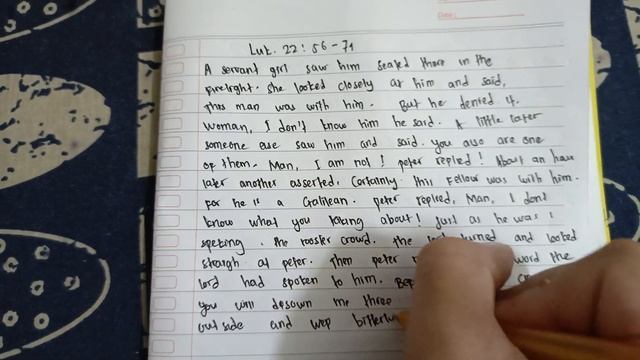 Date:
Luk. 22: 56-71
A servant girl saw him seated there in the
firelight. she looked closely at him and said,
this man was with him. But he denied it.
woman, I don't know him he said. A little later
someone else saw him and said. you also are one
of them. Man, I am not! peter replied! About an hour
later another asserted. Certainly. this fellow was with him.
for he is a Galilean. peter replied, Man, I dont
know what you taking about! Just as he was
speking. the rooster crowd. the turned and looked
straigh at peter. Then peter word the
lord had spoken to him. Bef
you will desown me three
out side and wep bitterl